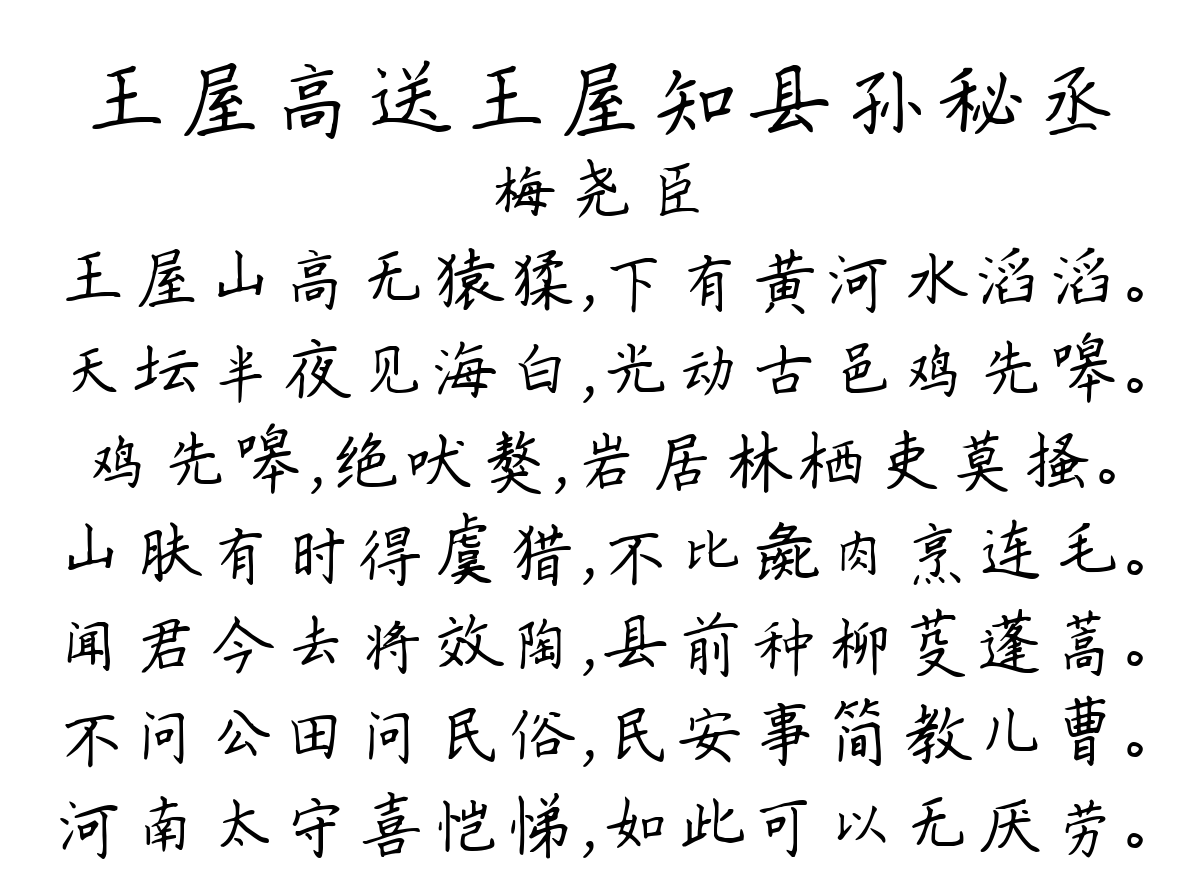 王屋高送王屋知县孙秘丞
梅尧臣
王屋山高无猿猱,下有黄河水滔滔。
天坛半夜见海白,光动古邑鸡先嗥。
鸡先嗥,绝吠獒,岩居林栖吏莫搔。
山肤有时得虞猎,不比彘肉烹连毛。
闻君今去将效陶,县前种柳芟蓬蒿。
不问公田问民俗,民安事简教儿曹。
河南太守喜恺悌,如此可以无厌劳。